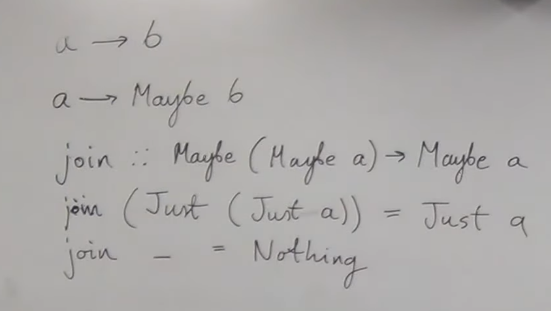 a → b
a → Maybe b
join :: Maybe (Maybe a) → Maybe a
join (Just (Just a)) = Just a
join _ = Nothing